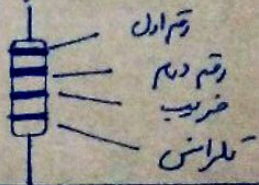 رقم اول
رقم دوم
ضریب
تلرانس